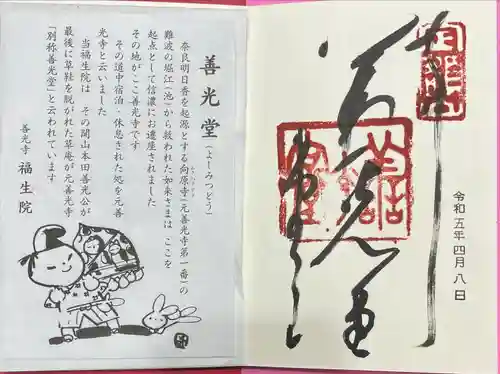 善光堂(よしみつどう)
奈良明日香を起源とする向原寺(元善光寺第一番)の
難波の堀江(池)から救われた如来さまは ここを
起点として信濃にお遷座されました
その地がここ善光寺です
その道中宿泊・休息された処を元善
光寺と云いました
当福生院は その開山本田善光公が
最後に草鞋を脱がれた草庵が元善光寺
「別称善光堂」と云われています
善光寺 福生院
善光堂
令和五年四月八日